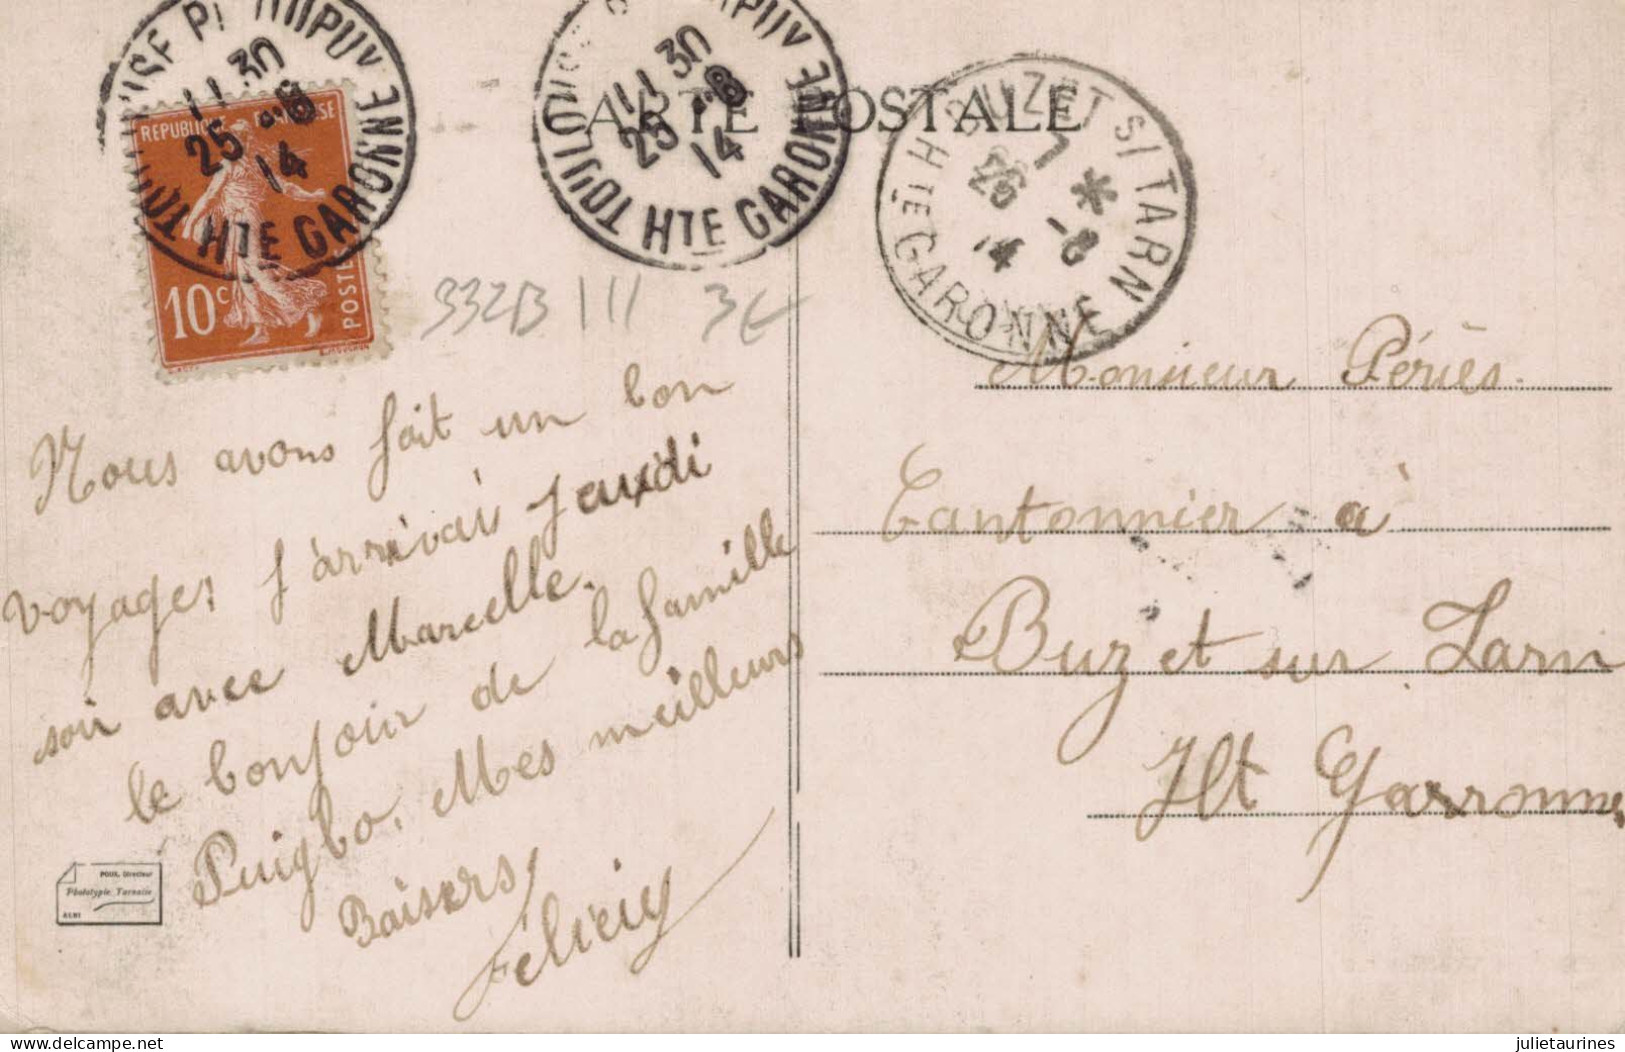 CARTE POSTALE
TOULOUSE PL DUPUY HTE GARONNE
11 30
25 -8
14
REPUBLIQUE FRANÇAISE
10c
POSTES
TOULOUSE PL DUPUY HTE GARONNE
11 30
25 -8
14
BUZET S/ TARN
HTE GARONNE
7 *
26 -8
14
332B 111 3€
Nous avons fait un bon
voyages j'arrivais Jeudi
soir avec Marcelle.
le bonjoir de la famille
Puigbo. Mes meilleurs
Baisers
Monsieur Périès
Cantonnier à
Buzet sur Tarn
Ht Garronne
POUX, Directeur
Phototypie Tarnaise
ALBI
julietaurines